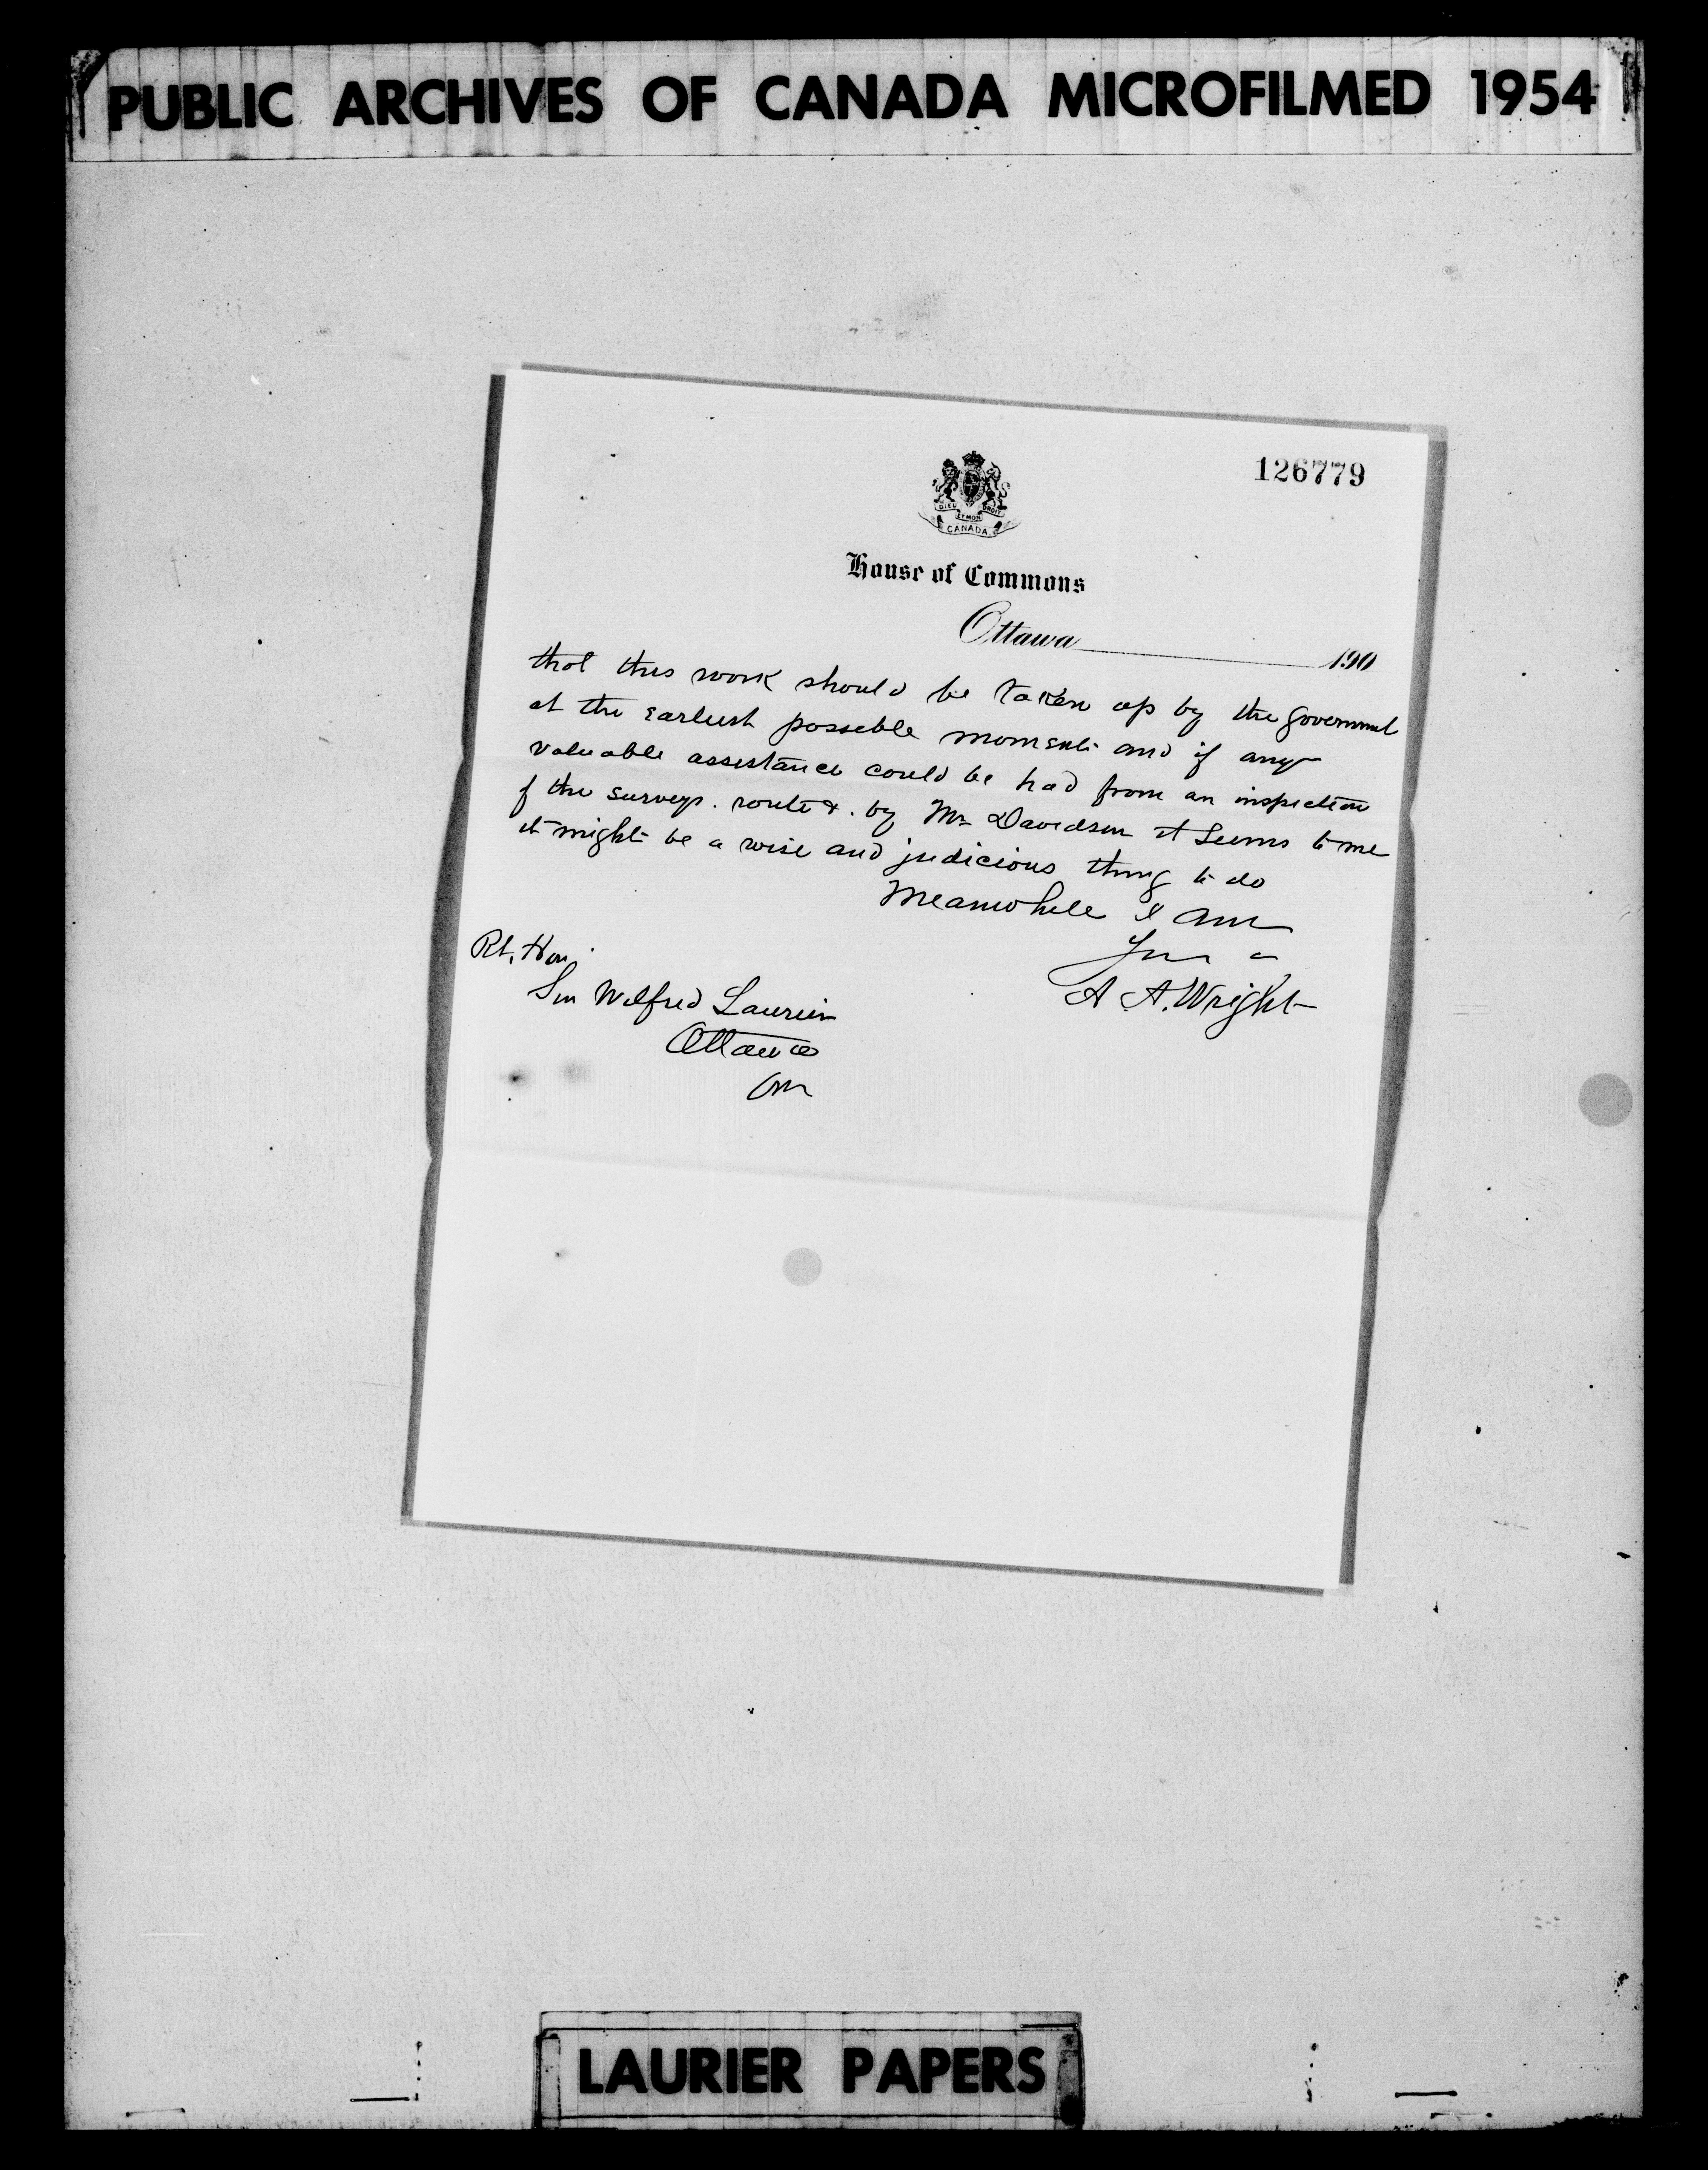 PUBLIC ARCHIVES OF CANADA MICROFILMED 1954
126779
DIEU ET MON DROIT
CANADA
House of Commons
Ottawa 190
that this work should be taken up by the government
at the earliest possible moment and if any
valuable assistance could be had from an inspection
of the surveys. route &. by Mr Davidson it seems to me
it might be a wise and judicious thing to do
Meanwhile I am
A. A. Wright
Rt. Hon.
Sir Wilfred Laurier
Ottawa
Ont
LAURIER PAPERS